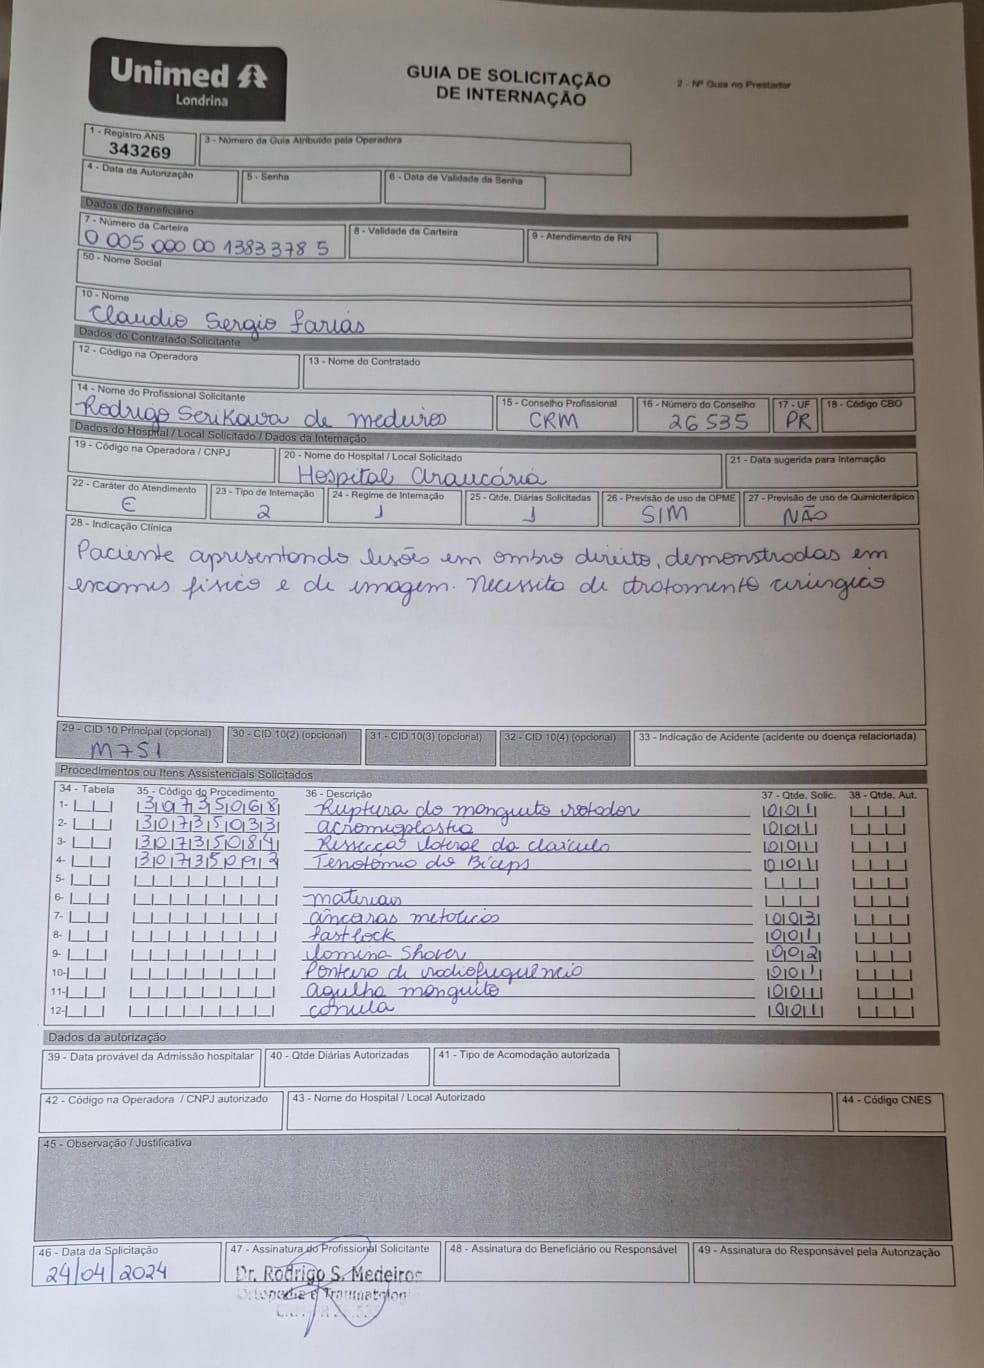 Unimed
Londrina
GUIA DE SOLICITAÇÃO
DE INTERNAÇÃO
2 - Nº Guia no Prestador
1 - Registro ANS
343269
3 - Número da Guia Atribuído pela Operadora
4 - Data da Autorização
5 - Senha
6 - Data de Validade da Senha
Dados do Beneficiário
7 - Número da Carteira
0 005 000 00 1383378 5
8 - Validade da Carteira
9 - Atendimento de RN
50 - Nome Social
10 - Nome
Claudio Sergio Farias
Dados do Contratado Solicitante
12 - Código na Operadora
13 - Nome do Contratado
14 - Nome do Profissional Solicitante
Rodrigo Serikawa de Medeiros
15 - Conselho Profissional
CRM
16 - Número do Conselho
26535
17 - UF
PR
18 - Código CBO
Dados do Hospital / Local Solicitado / Dados da Internação
19 - Código na Operadora / CNPJ
20 - Nome do Hospital / Local Solicitado
Hospital Araucária
21 - Data sugerida para Internação
22 - Caráter do Atendimento
E
23 - Tipo de Internação
2
24 - Regime de Internação
1
25 - Qtde. Diárias Solicitadas
1
26 - Previsão de uso de OPME
SIM
27 - Previsão de uso de Quimioterápico
NÃO
28 - Indicação Clínica
Paciente apresentando lesões em ombro direito, demonstradas em
exames físico e de imagem. Necessita de tratamento cirúrgico
29 - CID 10 Principal (opcional)
M751
30 - CID 10(2) (opcional)
31 - CID 10(3) (opcional)
32 - CID 10(4) (opcional)
33 - Indicação de Acidente (acidente ou doença relacionada)
Procedimentos ou Itens Assistenciais Solicitados
34 - Tabela 35 - Código do Procedimento 36 - Descrição 37 - Qtde. Solic. 38 - Qtde. Aut.
1- 30735068 Ruptura do manguito rotador 001
2- 30735033 acromioplastia 001
3- 30735084 Ressecção lateral da clavícula 001
4- 30735092 Tenotomia do Bíceps 001
5-
6- materiais
7- âncoras metálicas 003
8- fastlock 001
9- lamina Shaver 002
10- Ponteira de radiofrequência 001
11- agulha manguito 001
12- cânula 001
Dados da autorização
39 - Data provável da Admissão hospitalar
40 - Qtde Diárias Autorizadas
41 - Tipo de Acomodação autorizada
42 - Código na Operadora / CNPJ autorizado
43 - Nome do Hospital / Local Autorizado
44 - Código CNES
45 - Observação / Justificativa
46 - Data da Solicitação
24/04/2024
47 - Assinatura do Profissional Solicitante
Dr. Rodrigo S. Medeiros
Ortopedia e Traumatologi
48 - Assinatura do Beneficiário ou Responsável
49 - Assinatura do Responsável pela Autorização